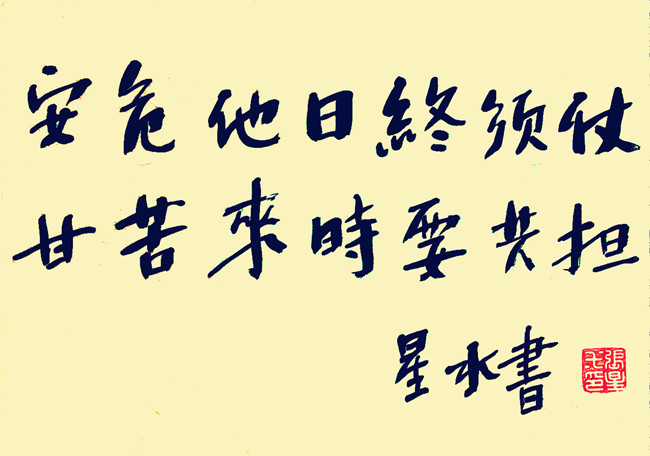 安危他日終须仗
甘苦來時要共担
星水書
張星水印